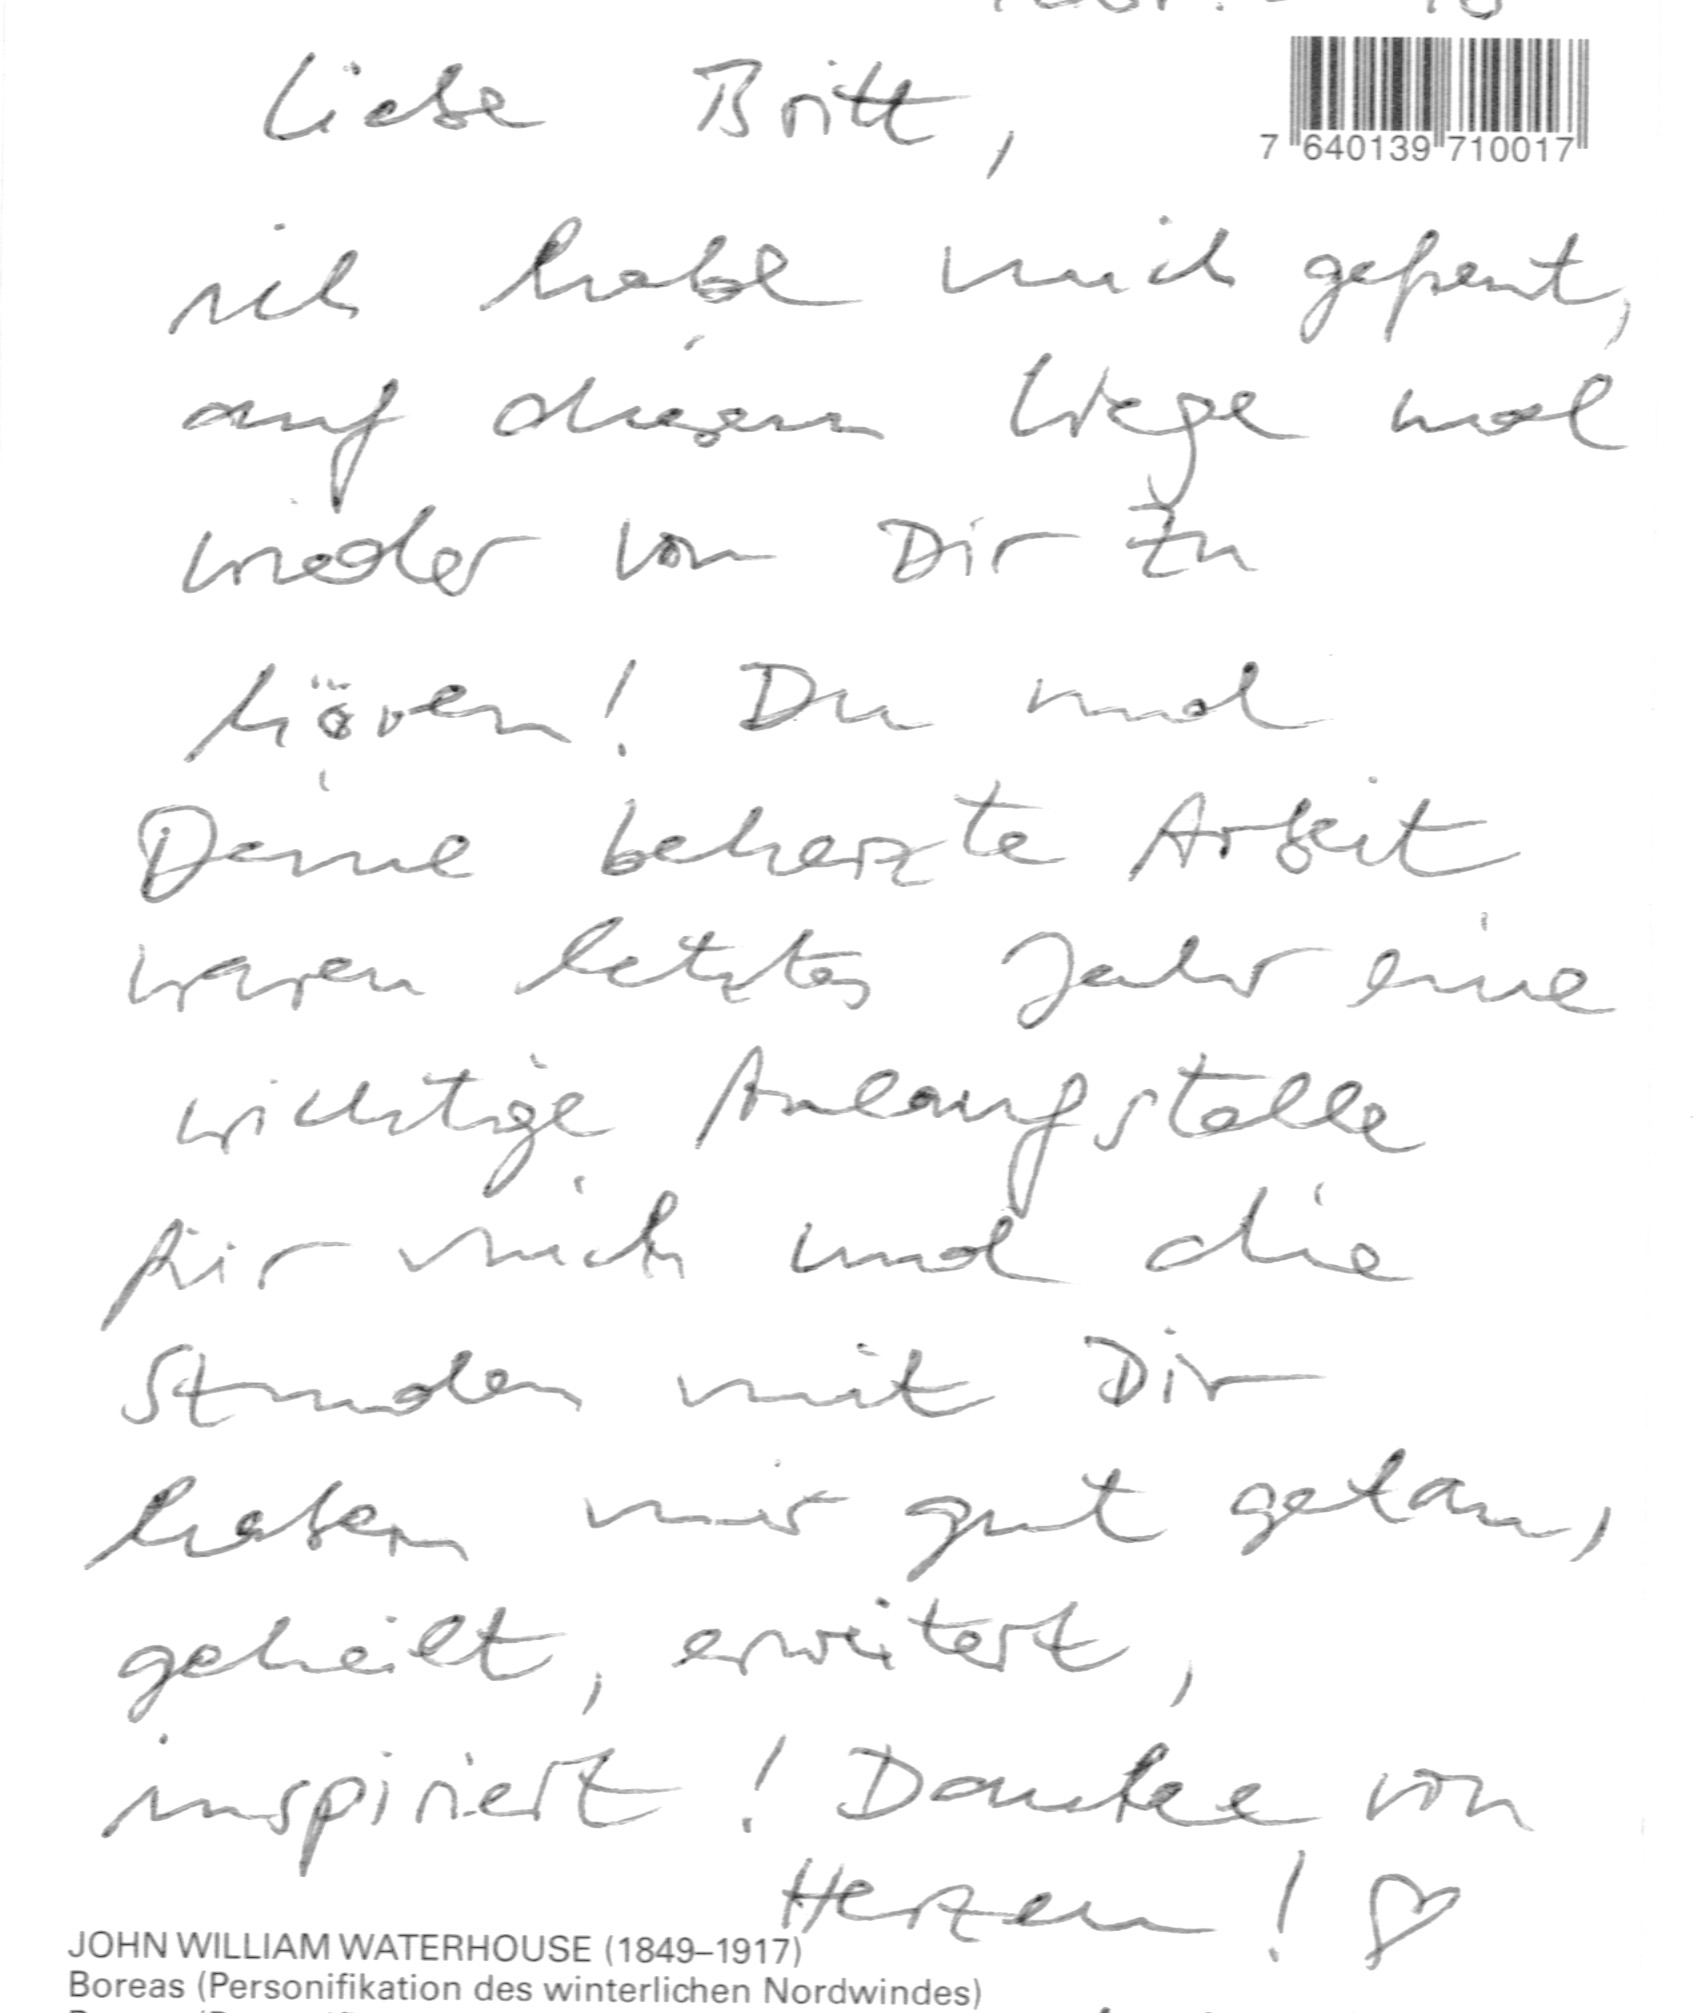 Liebe Britt,
7 640139 710017
ich habe mich gefreut,
auf diesem Wege mal
wieder von Dir zu
hören! Du und
Deine beherzte Arbeit
waren letztes Jahr eine
wichtige Anlaufstelle
für mich und die
Stunden mit Dir
haben mir gut getan,
geheilt, erweitert,
inspiriert! Danke von
Herzen! ♡
JOHN WILLIAM WATERHOUSE (1849–1917)
Boreas (Personifikation des winterlichen Nordwindes)